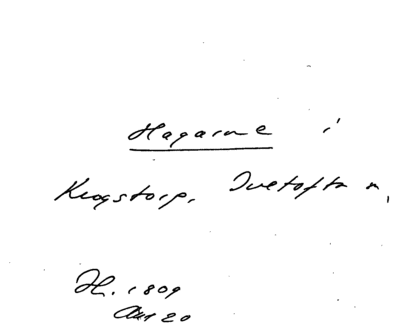 Hagarne i
Krogstorp, Tvetofta n,
H. 1809
20